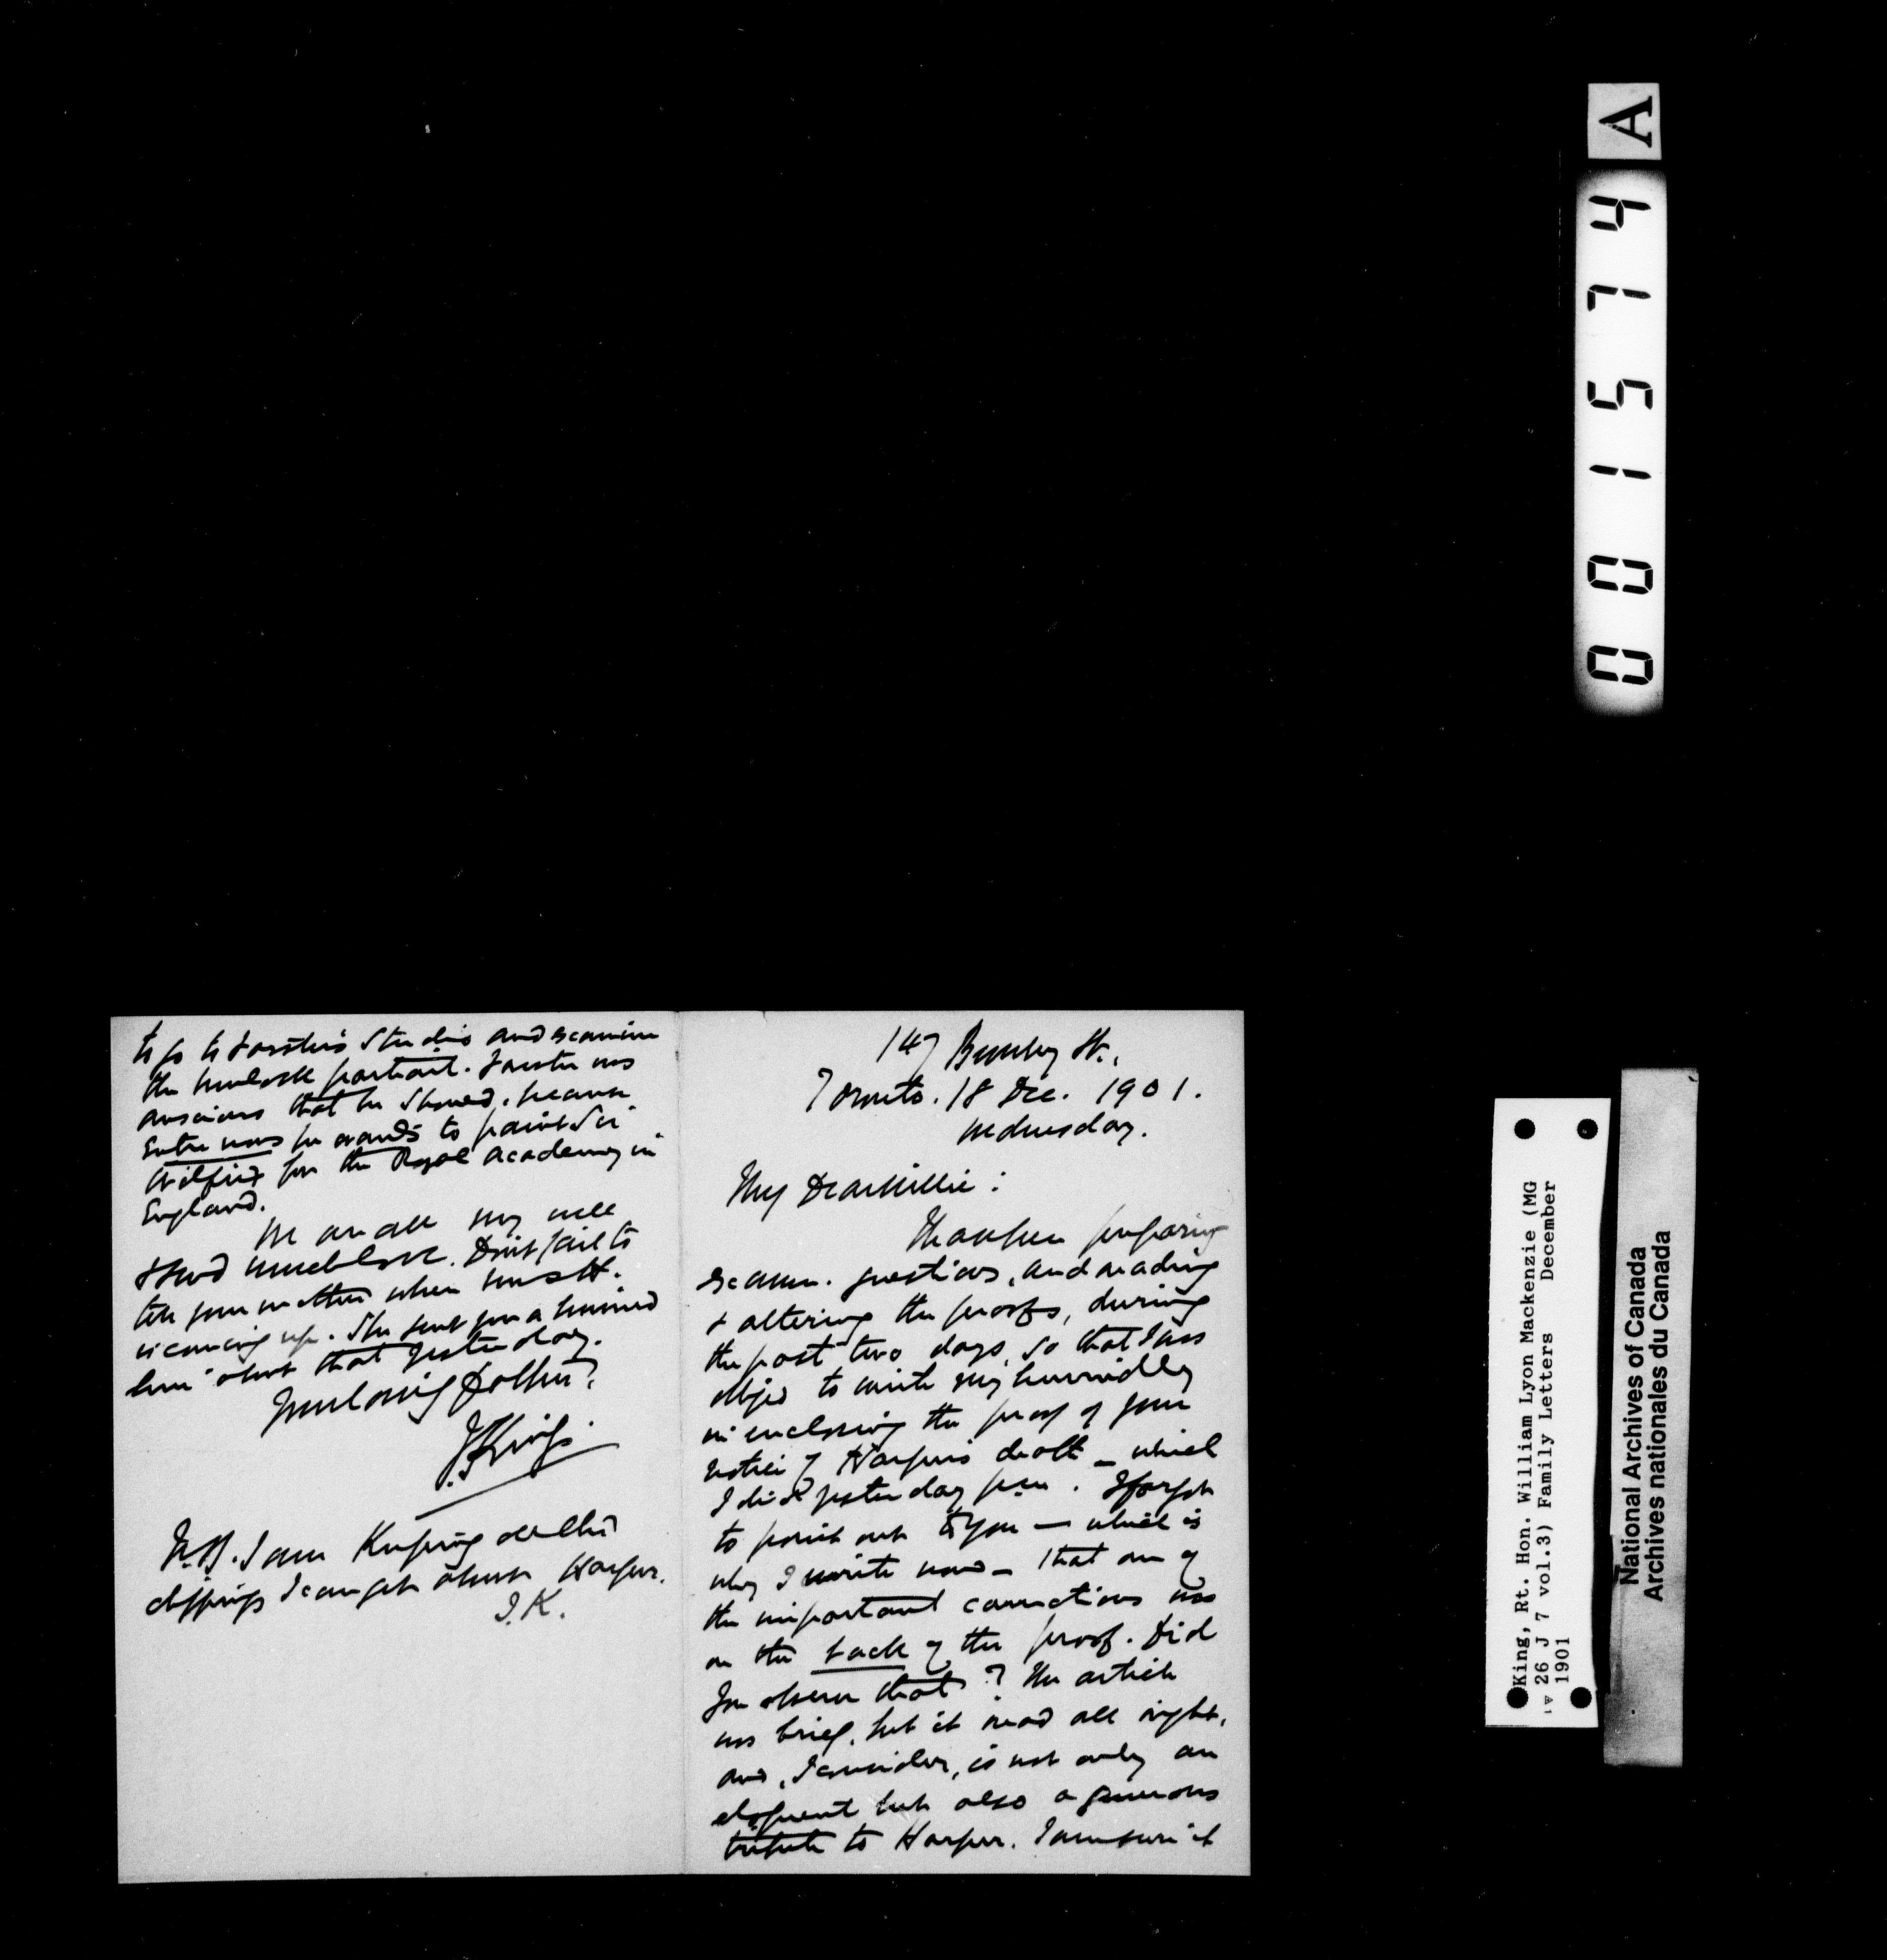 147 Beverley St.,
Toronto. 18 Dec. 1901.
Wednesday.
My Dear Willie:
I have been preparing
exam. questions, and reading
& altering the proofs, during
the past two days, so that I was
obliged to write very hurriedly
in enclosing the proof of your
notice of Harper's death — which
I did yesterday p.m. I forgot
to point out to you — which is
why I write now — that one of
the important corrections was
on the back of the proof. Did
you observe that? The article
was brief, but it read all right,
and, I consider, is not only an
eloquent but also a generous
tribute to Harper. I am sure it
to go to Forster's Studio and examine
the Mulock portrait. Forster was
anxious that he should, because
Entre nous he wants to paint Sir
Wilfrid for the Royal Academy in
England.
We are all very well
& send much love. Don't fail to
tell your mother when Miss H.
is coming up. She sent you a hurried
line about that yesterday.
Your loving Father,
J. King.
N.B. I am keeping all the
clippings I can get about Harper.
J.K.
A
0015174
King, Rt. Hon. William Lyon Mackenzie (MG
26 J 7 vol.3) Family Letters December
1901
National Archives of Canada
Archives nationales du Canada